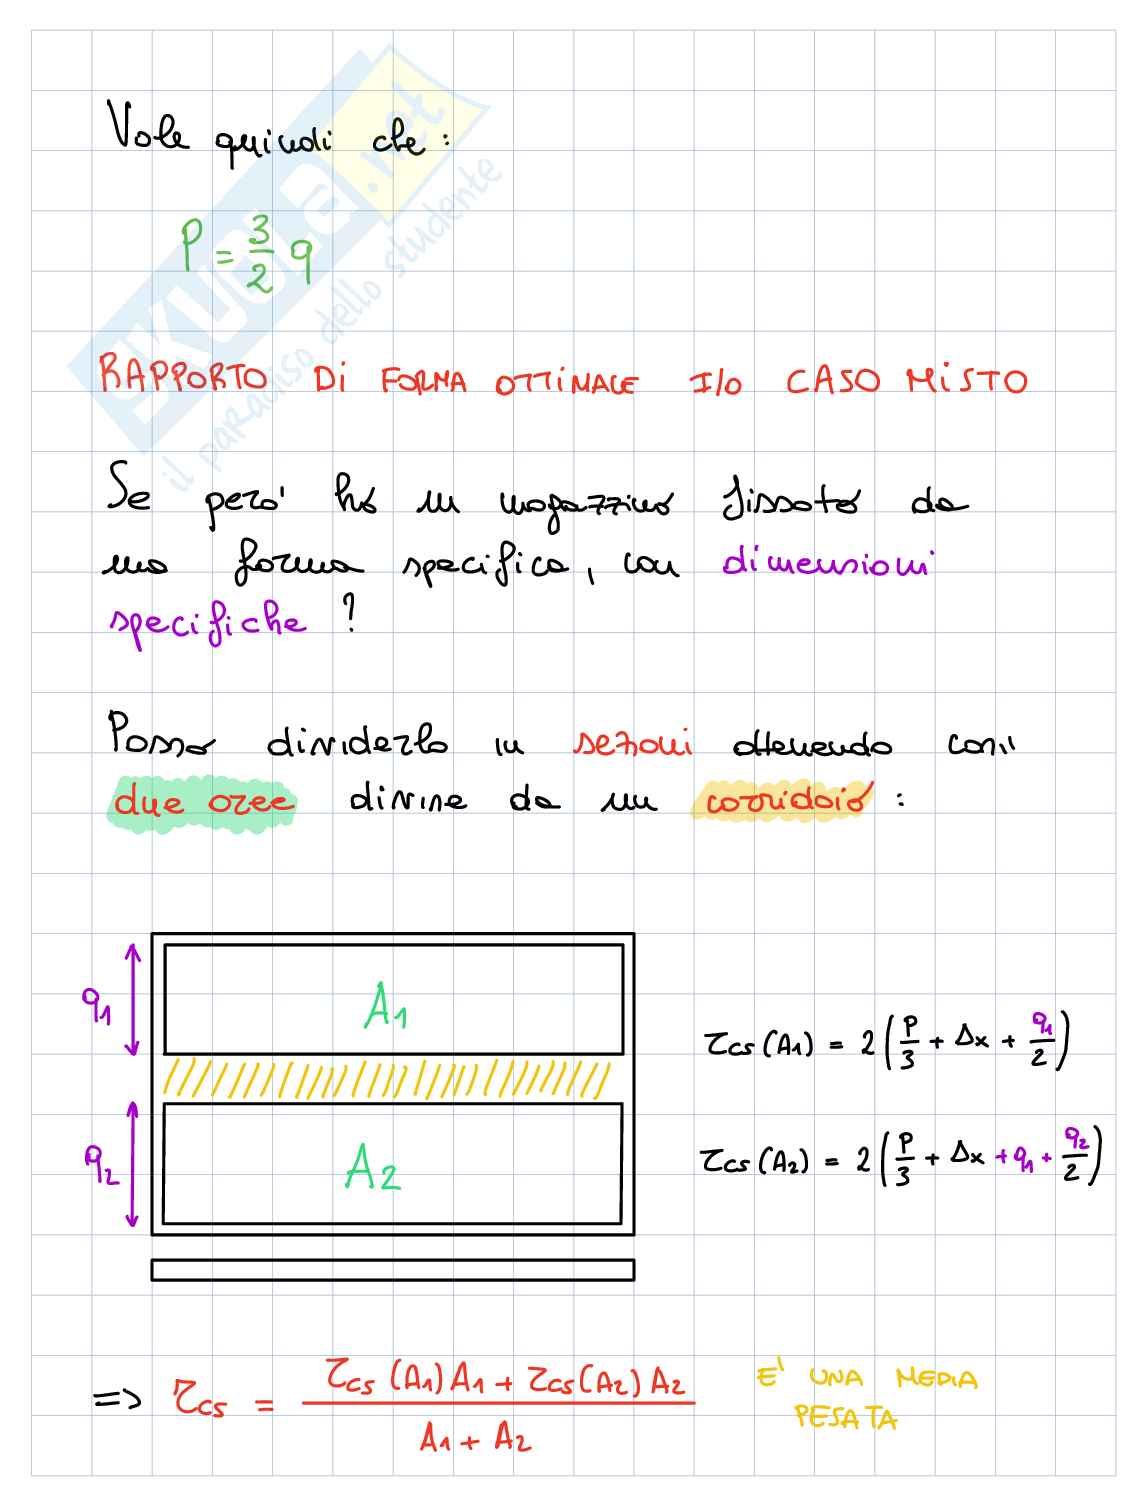 Vale quindi che :
P = 3/2 q
RAPPORTO DI FORMA OTTIMALE I/O CASO MISTO
Se però ho un magazzino fissato da
una forma specifica, con dimensioni
specifiche ?
Posso dividerlo in sezioni ottenendo così
due aree divise da un corridoio :
q1
A1
τcs (A1) = 2 (P/3 + Δx + q1/2)
q2
A2
τcs (A2) = 2 (P/3 + Δx + q1 + q2/2)
=> τcs = (τcs (A1) A1 + τcs (A2) A2) / (A1 + A2)
E' UNA MEDIA
PESATA
SKUOLA.net
il paradiso dello studente